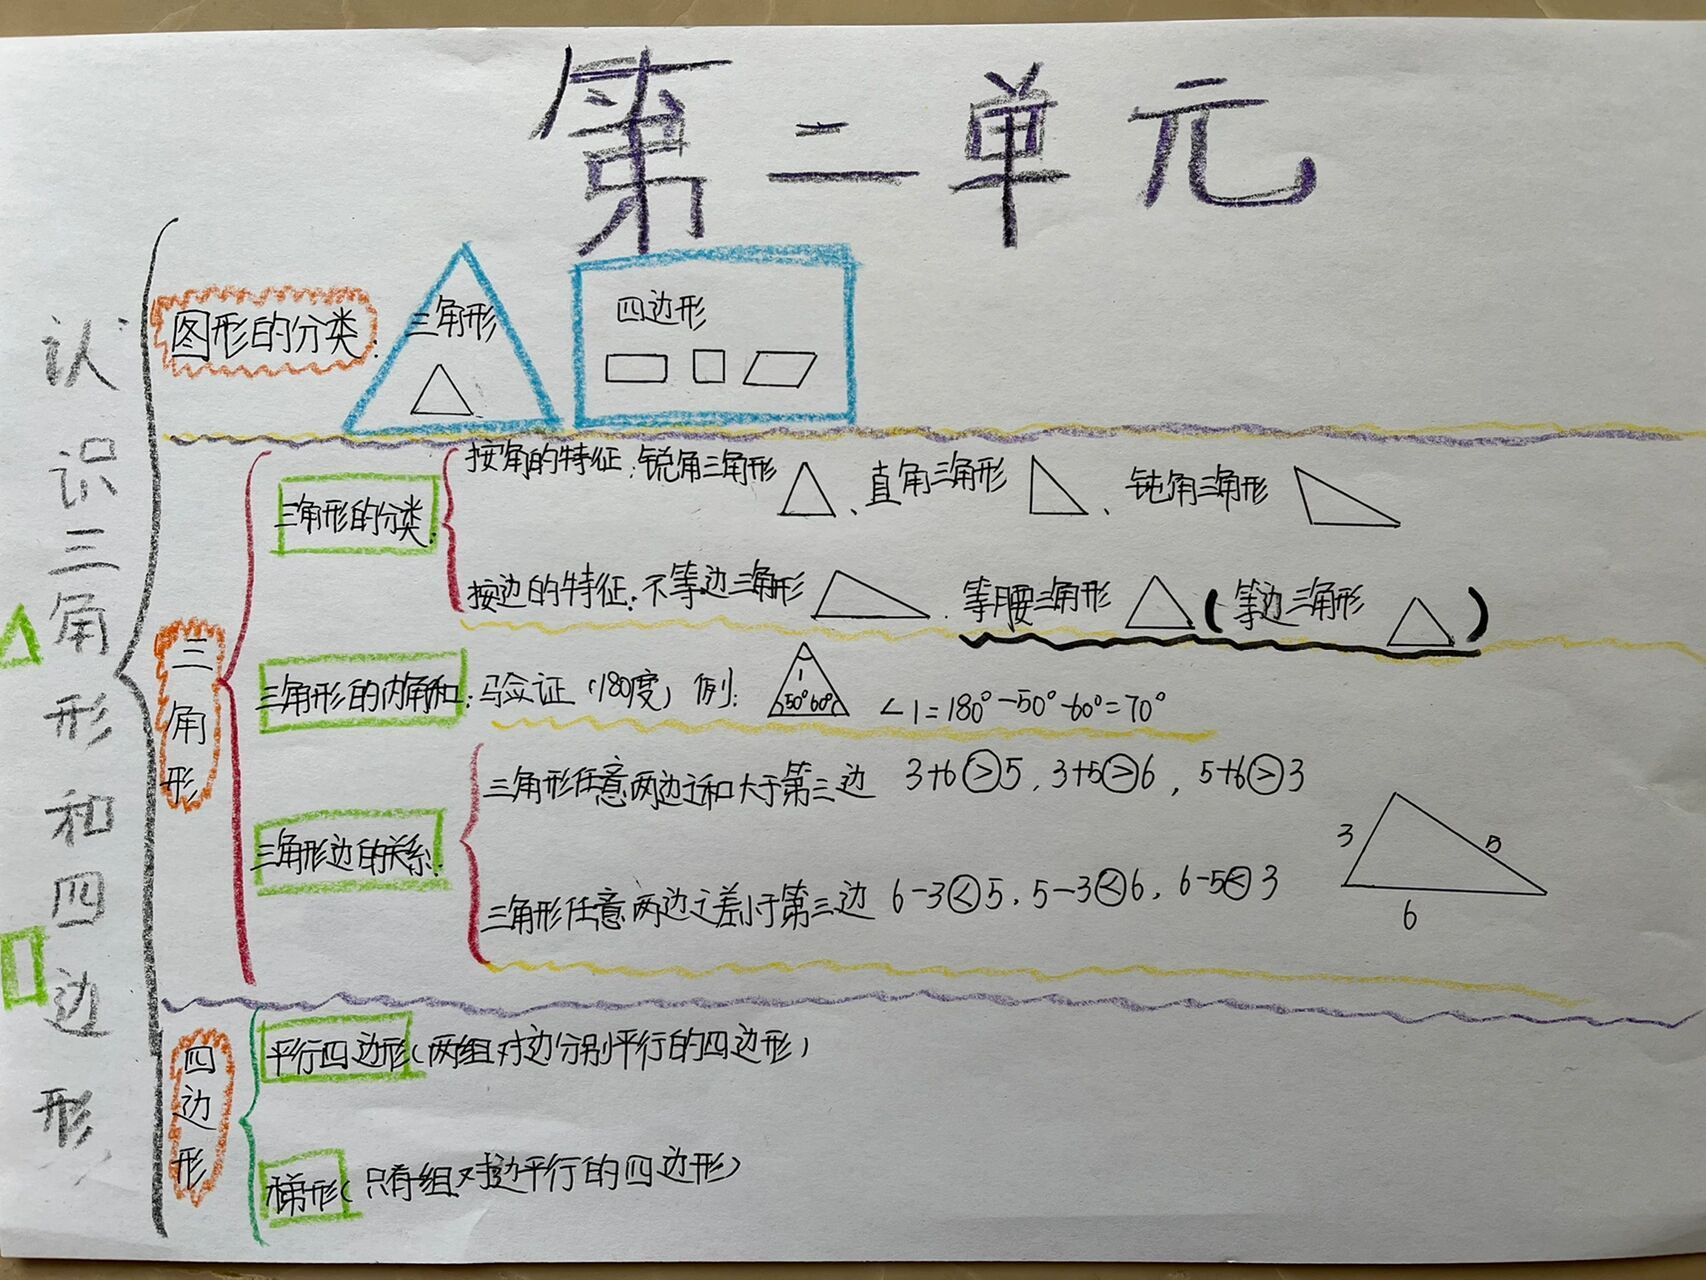 第二单元
认识三角形和四边形
图形的分类:
三角形
四边形
三角形
三角形的分类:
按角的特征:锐角三角形、直角三角形、钝角三角形
按边的特征:不等边三角形、等腰三角形(等边三角形)
三角形的内角和:验证(180度)例:
1
50° 60°
∠1=180°-50°-60°=70°
三角形边的关系:
三角形任意两边之和大于第三边 3+6>5,3+5>6,5+6>3
三角形任意两边之差小于第三边 6-3<5,5-3<6,6-5<3
3
5
6
四边形
平行四边形(两组对边分别平行的四边形)
梯形(只有一组对边平行的四边形)